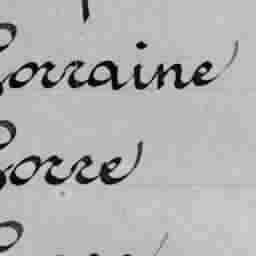 Lorraine
Lorre